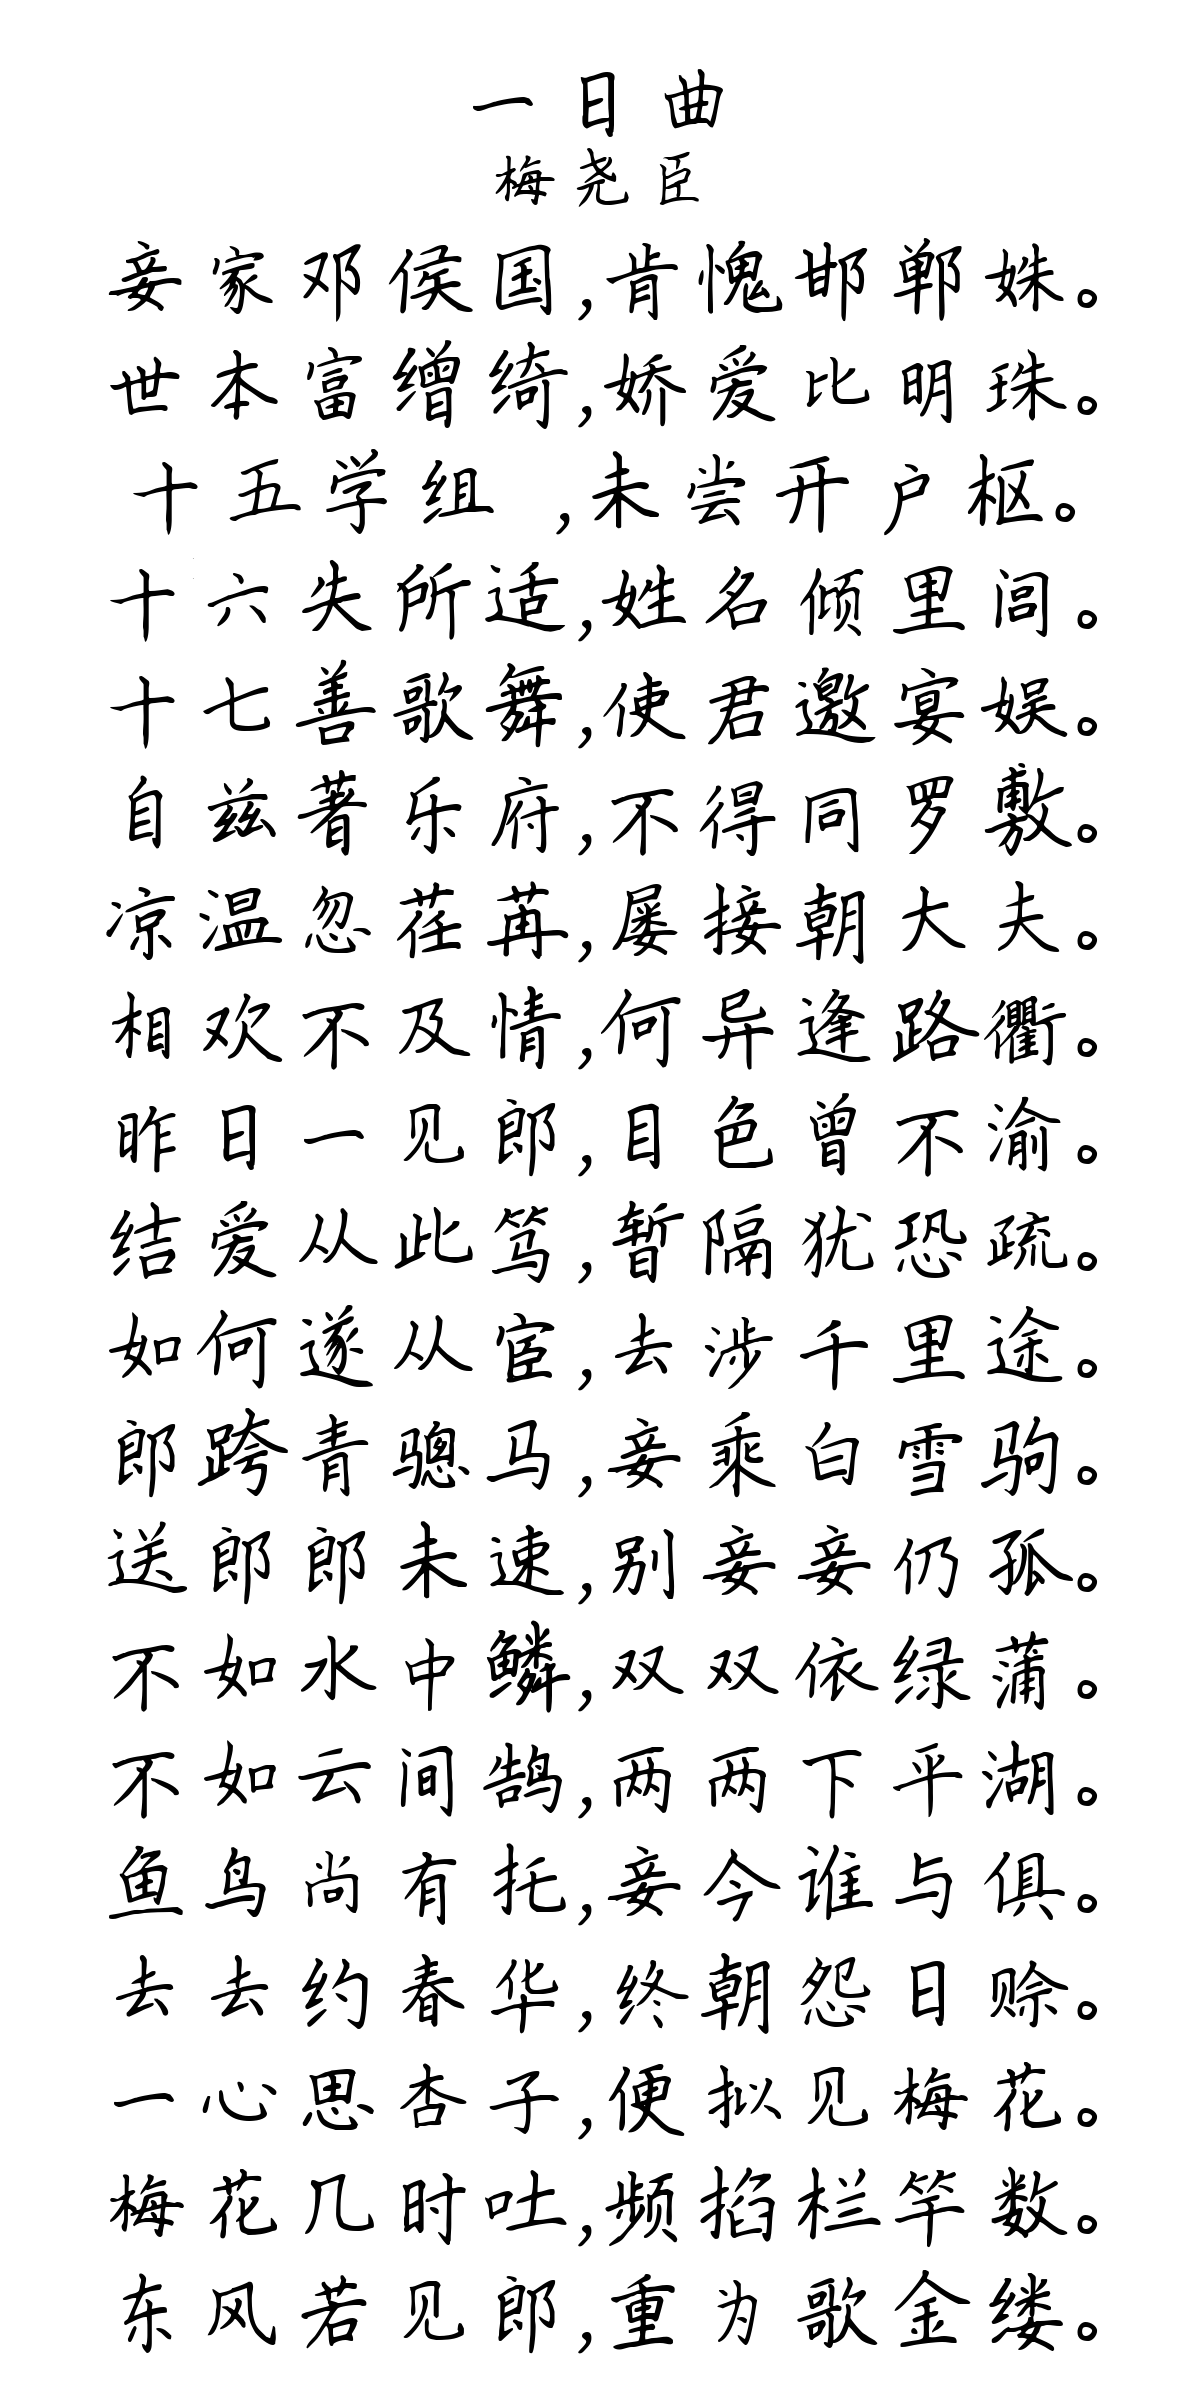 一日曲
梅尧臣
妾家邓侯国,肯愧邯郸姝。
世本富缯绮,娇爱比明珠。
十五学组 ,未尝开户枢。
十六失所适,姓名倾里闾。
十七善歌舞,使君邀宴娱。
自兹著乐府,不得同罗敷。
凉温忽荏苒,屡接朝大夫。
相欢不及情,何异逢路衢。
昨日一见郎,目色曾不渝。
结爱从此笃,暂隔犹恐疏。
如何遂从宦,去涉千里途。
郎跨青骢马,妾乘白雪驹。
送郎郎未速,别妾妾仍孤。
不如水中鳞,双双依绿蒲。
不如云间鹄,两两下平湖。
鱼鸟尚有托,妾今谁与俱。
去去约春华,终朝怨日赊。
一心思杏子,便拟见梅花。
梅花几时吐,频掐栏竿数。
东风若见郎,重为歌金缕。